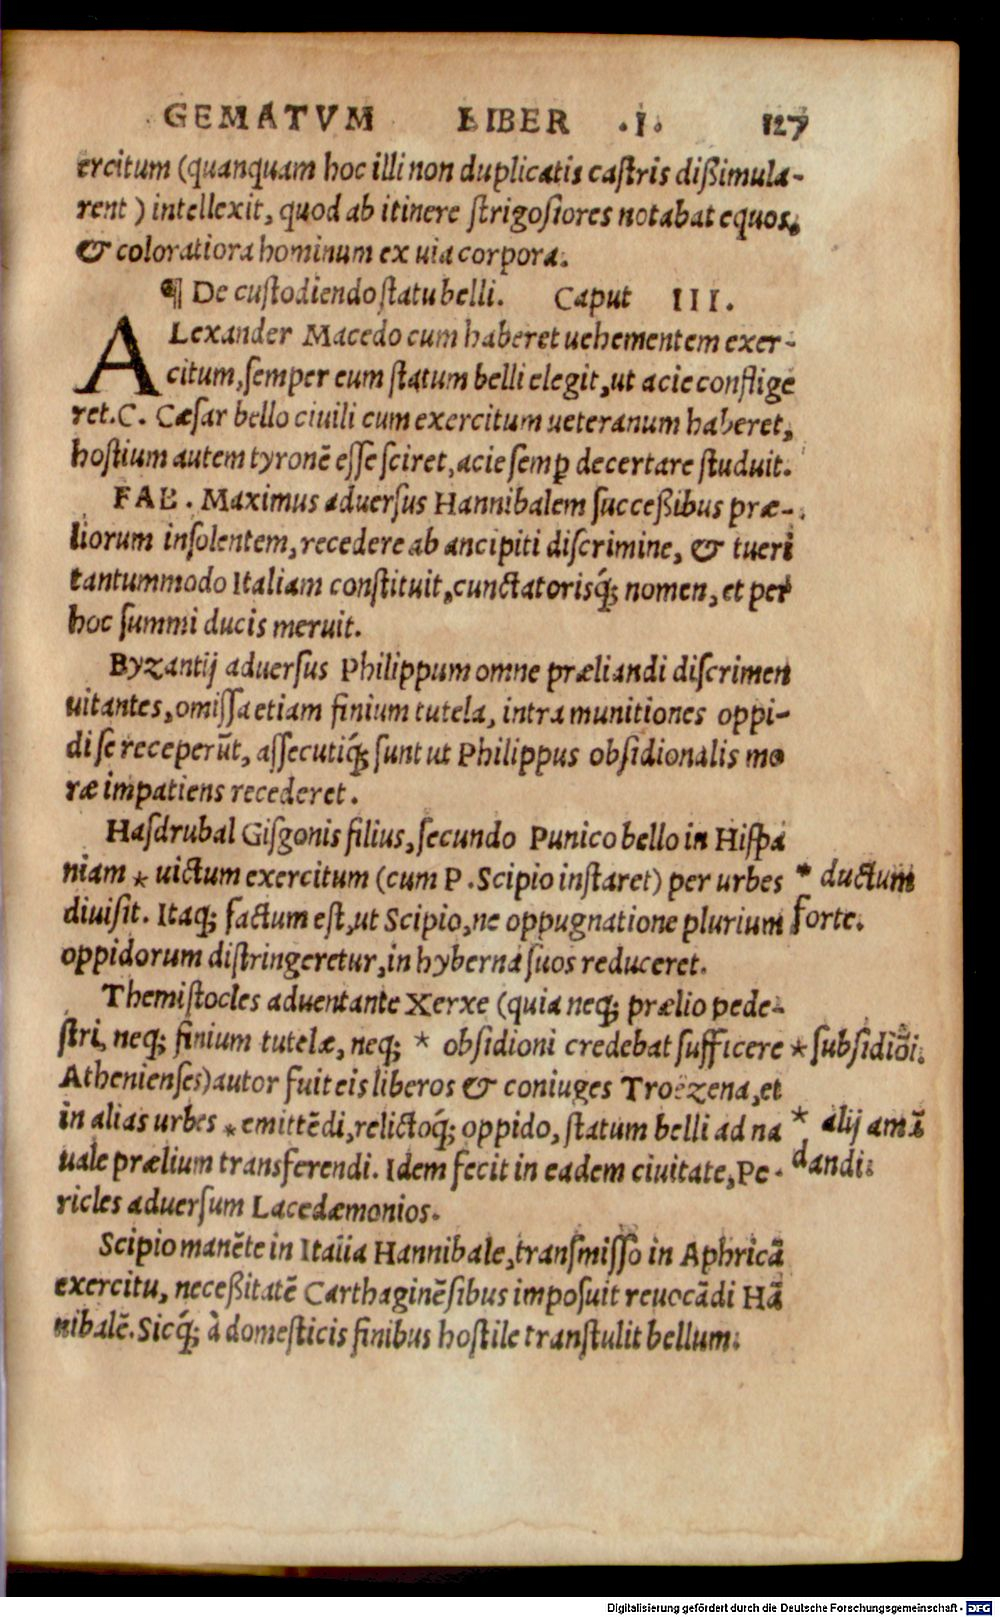 GEMATVM LIBER .I. 127
ercitum (quanquam hoc illi non duplicatis castris dißimula-
rent) intellexit, quod ab itinere strigosiores notabat equos,
& coloratiora hominum ex uia corpora.
¶ De custodiendo statu belli. Caput III.
ALexander Macedo cum haberet uehementem exer-
citum, semper eum statum belli elegit, ut acie conflige
ret. C. Cæsar bello ciuili cum exercitum ueteranum haberet,
hostium autem tyronē esse sciret, acie semꝑ decertare studuit.
FAB. Maximus aduersus Hannibalem succeßibus præ-
liorum insolentem, recedere ab ancipiti discrimine, & tueri
tantummodo Italiam constituit, cunctatorisq́; nomen, et per
hoc summi ducis meruit.
Byzantij aduersus Philippum omne præliandi discrimen
uitantes, omissa etiam finium tutela, intra munitiones oppi-
di se receperūt, assecutiq́; sunt ut Philippus obsidionalis mo
ræ impatiens recederet.
Hasdrubal Gisgonis filius, secundo Punico bello in Hispa
niam * uictum exercitum (cum P. Scipio instaret) per urbes * ductum
diuisit. Itaq; factum est, ut Scipio, ne oppugnatione plurium forte.
oppidorum distringeretur, in hyberna suos reduceret.
Themistocles aduentante Xerxe (quia neq; prælio pede-
stri, neq; finium tutelæ, neq; * obsidioni credebat sufficere * subsidiōi.
Athenienses) autor fuit eis liberos & coniuges Troëzena, et
in alias urbes * emittēdi, relictoq́; oppido, statum belli ad na * alij amā
uale prælium transferendi. Idem fecit in eadem ciuitate, Pe- dandi.
ricles aduersum Lacedæmonios.
Scipio manēte in Italia Hannibale, transmisso in Aphricā
exercitu, neceßitatē Carthaginēsibus imposuit reuocādi Hā
nibalē. Sicq́; à domesticis finibus hostile transtulit bellum.
Digitalisierung gefördert durch die Deutsche Forschungsgemeinschaft - DFG